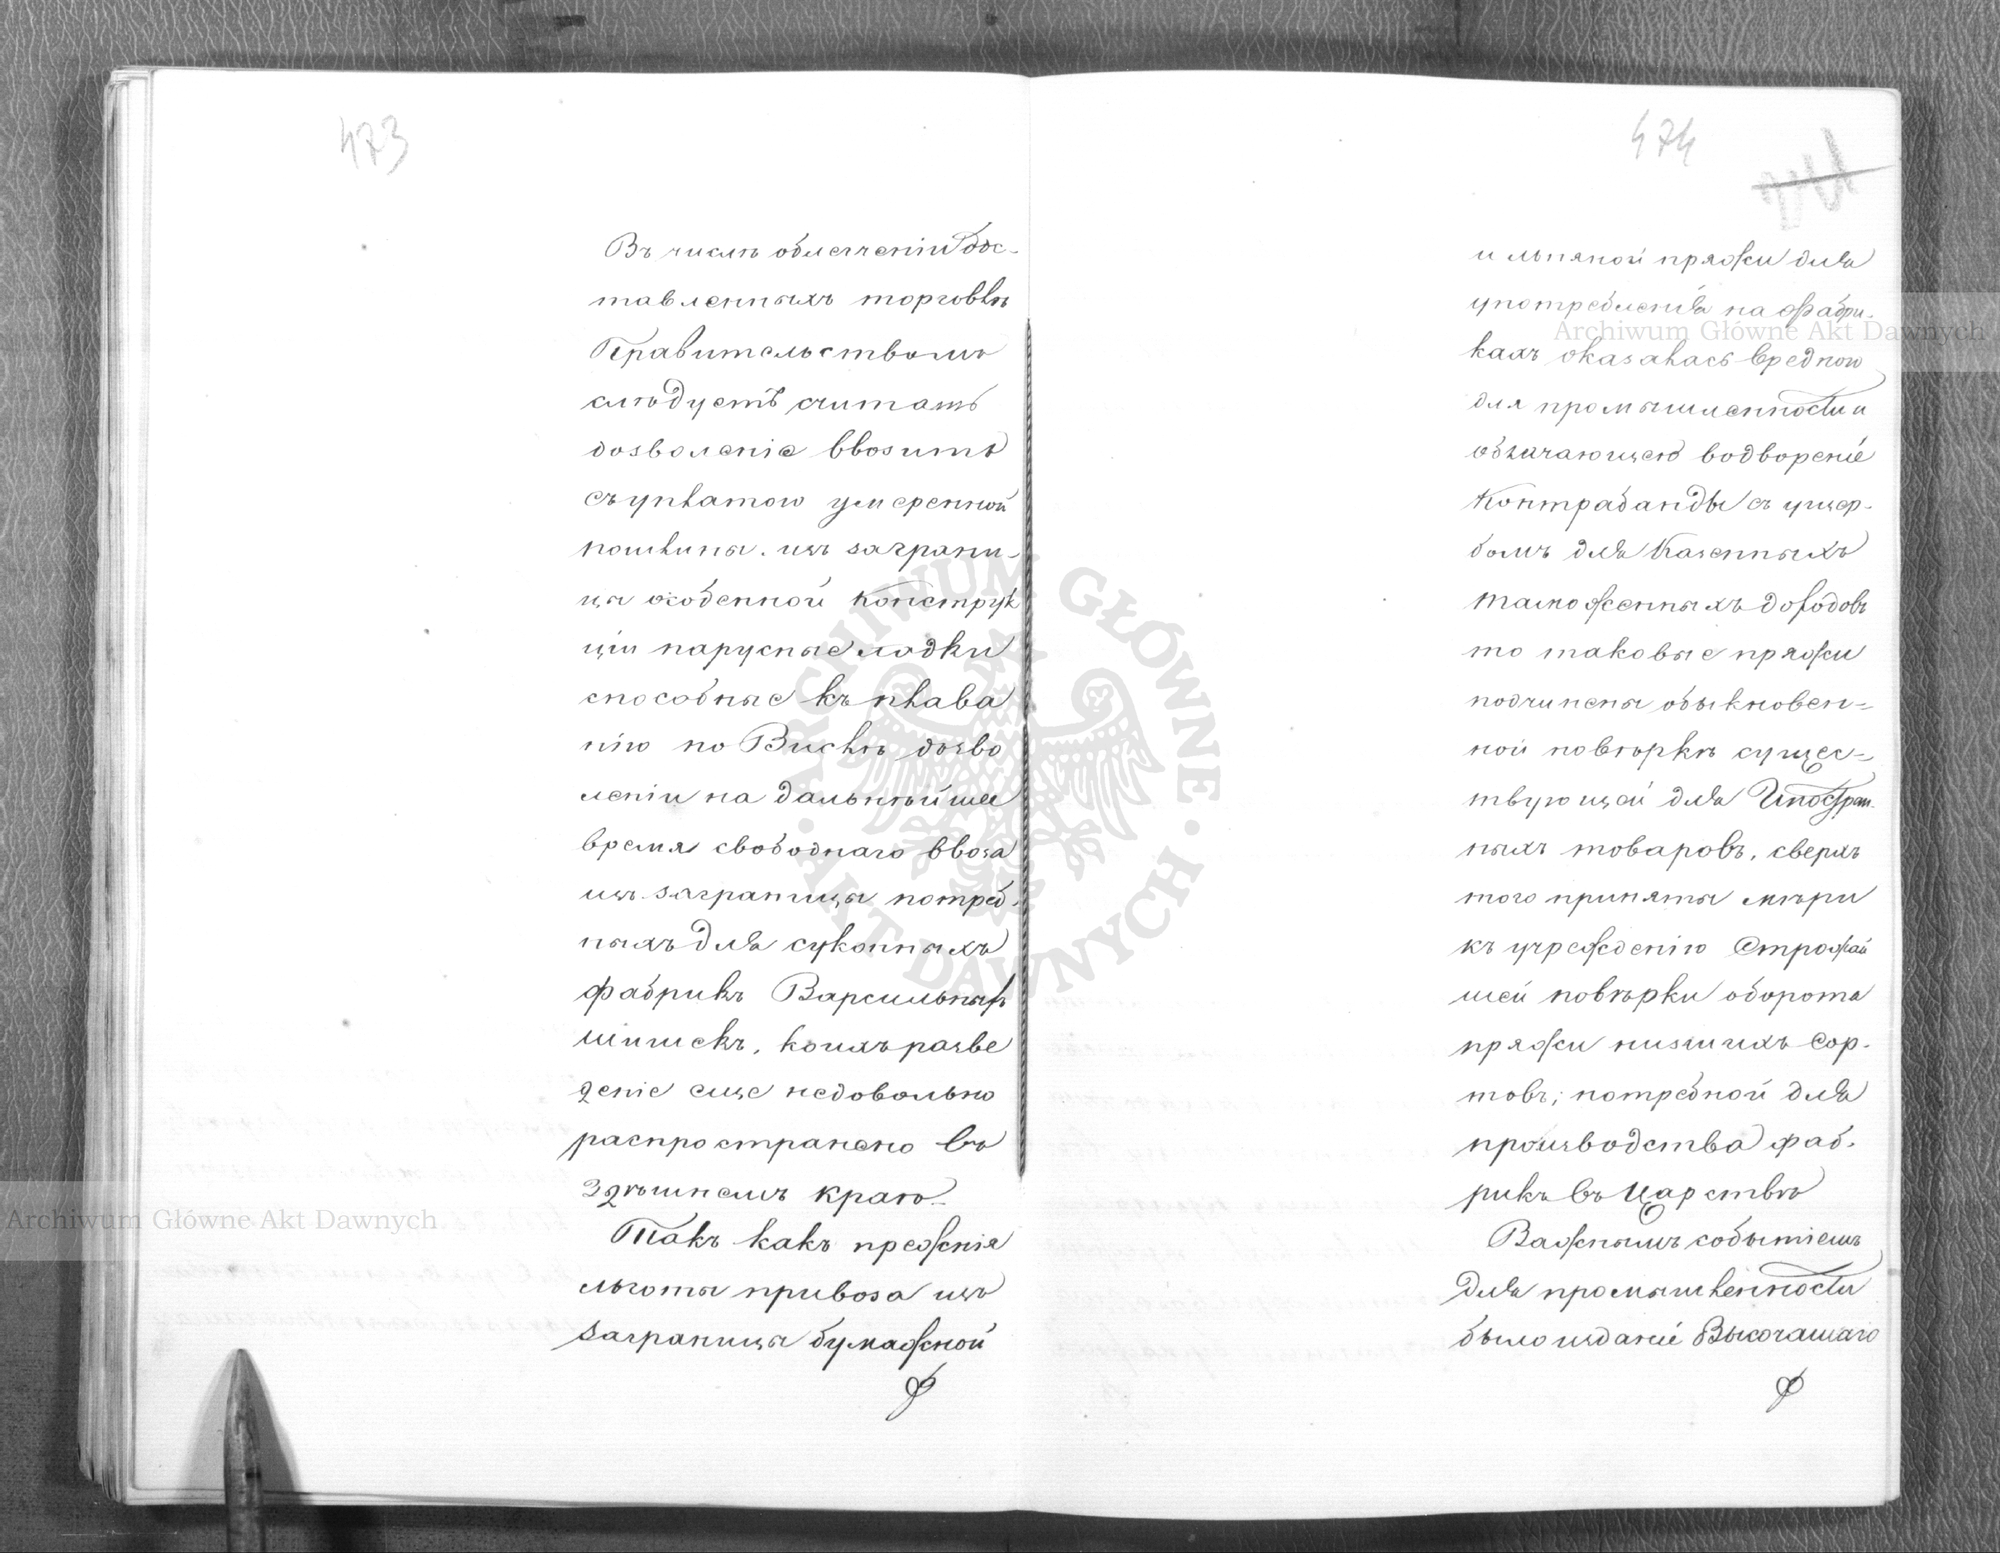 473
Въ числѣ облегченіи дос-
тавленныхъ торговлѣ
Правительствомъ
слѣдуетъ считать
дозволеніе ввозить
съ уплатою умеренной
пошлины. изъ заграни-
цы особенной конструк
ціи парусные лодки
способные къ плава
нію по Вислѣ дозво
леніи на дальнѣйшее
время свободнаго ввоза
изъ заграницы потреб-
ныхъ для суконныхъ
фабрикъ Варсильныхъ
шишекъ, коихъ разве
деніе еще недовольно
распространено въ
здѣшнемъ краю.
Такъ какъ прежнія
льготы привоза изъ
заграницы бумажной
474
и льняной пряжи для
употребленія на фабри-
кахъ оказалась вредною
для промышленности и
облегчающею водвореніе
контрабанды съ ущер-
бомъ для казенныхъ
таможенныхъ доходовъ
то таковые пряжи
подчинены обыкновен=
ной повѣркѣ сущес=
твующей для Иностран-
ныхъ товаровъ, сверхъ
того приняты мѣри
къ учрежденію строжай
шей повѣрки оборота
пряжи низшихъ сор-
товъ; потребной для
производства фаб-
рикъ въ Царствѣ
Важнымъ событіемъ
для промышленности
было изданіе Высочашаго
Archiwum Główne Akt Dawnych
Archiwum Główne Akt Dawnych
ARCHIWUM GŁÓWNE · AKT DAWNYCH ·